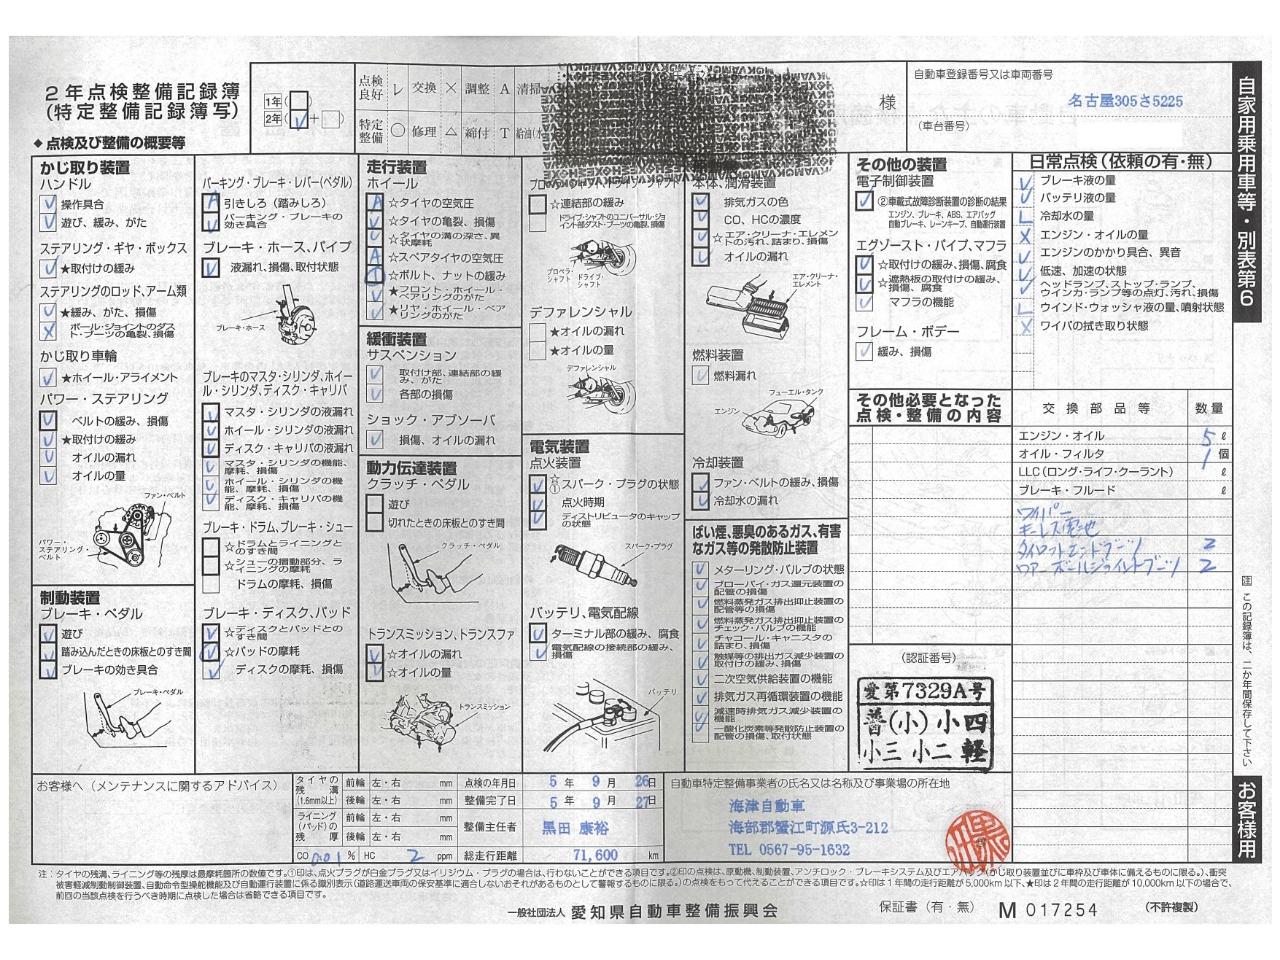 2年点検整備記録簿
(特定整備記録簿写)
1年(
2年( + )
点検良好 レ 交換 × 調整 A 清掃
特定整備 ○ 修理 △ 締付 T 給油(水
様
自動車登録番号又は車両番号
名古屋305さ5225
(車台番号)
自家用乗用車等・別表第6
◆点検及び整備の概要等
かじ取り装置
ハンドル
操作具合
遊び、緩み、がた
ステアリング・ギヤ・ボックス
★取付けの緩み
ステアリングのロッド、アーム類
★緩み、がた、損傷
ボール・ジョイントのダスト・ブーツの亀裂、損傷
かじ取り車輪
★ホイール・アライメント
パワー・ステアリング
ベルトの緩み、損傷
★取付けの緩み
オイルの漏れ
オイルの量
ファン・ベルト
パワー・ステアリング・ベルト
制動装置
ブレーキ・ペダル
遊び
踏み込んだときの床板とのすき間
ブレーキの効き具合
ブレーキ・ペダル
パーキング・ブレーキ・レバー(ペダル)
引きしろ(踏みしろ)
パーキング・ブレーキの効き具合
ブレーキ・ホース、パイプ
液漏れ、損傷、取付状態
ブレーキ・ホース
ブレーキのマスタ・シリンダ、ホイール・シリンダ、ディスク・キャリパ
マスタ・シリンダの液漏れ
ホイール・シリンダの液漏れ
ディスク・キャリパの液漏れ
マスタ・シリンダの機能、摩耗、損傷
ホイール・シリンダの機能、摩耗、損傷
ディスク・キャリパの機能、摩耗、損傷
ブレーキ・ドラム、ブレーキ・シュー
☆ドラムとライニングとのすき間
☆シューの摺動部分、ライニングの摩耗
ドラムの摩耗、損傷
ブレーキ・ディスク、パッド
☆ディスクとパッドとのすき間
☆パッドの摩耗
ディスクの摩耗、損傷
走行装置
ホイール
☆タイヤの空気圧
☆タイヤの亀裂、損傷
☆タイヤの溝の深さ、異状摩耗
☆スペアタイヤの空気圧
☆ボルト、ナットの緩み
★フロント・ホイール・ベアリングのがた
★リヤ・ホイール・ベアリングのがた
緩衝装置
サスペンション
取付け部、連結部の緩み、がた
各部の損傷
ショック・アブソーバ
損傷、オイルの漏れ
動力伝達装置
クラッチ・ペダル
遊び
切れたときの床板とのすき間
クラッチ・ペダル
トランスミッション、トランスファ
☆オイルの漏れ
☆オイルの量
トランスミッション
☆連結部の緩み
ドライブ・シャフトのユニバーサル・ジョイント部ダスト・ブーツの亀裂、損傷
プロペラ・シャフト
ドライブ・シャフト
デファレンシャル
★オイルの漏れ
★オイルの量
デファレンシャル
電気装置
点火装置
☆①スパーク・プラグの状態
点火時期
ディストリビュータのキャップの状態
スパーク・プラグ
バッテリ、電気配線
ターミナル部の緩み、腐食
電気配線の接続部の緩み、損傷
バッテリ
本体、潤滑装置
排気ガスの色
CO、HCの濃度
☆エア・クリーナ・エレメントの汚れ、詰まり、損傷
オイルの漏れ
エア・クリーナ・エレメント
燃料装置
燃料漏れ
フューエル・タンク
エンジン
冷却装置
ファン・ベルトの緩み、損傷
冷却水の漏れ
ばい煙、悪臭のあるガス、有害なガス等の発散防止装置
メターリング・バルブの状態
ブローバイ・ガス還元装置の配管の損傷
燃料蒸発ガス排出抑止装置の配管等の損傷
燃料蒸発ガス排出抑止装置のチェック・バルブの機能
チャコール・キャニスタの詰まり、損傷
触媒等の排出ガス減少装置の取付けの緩み、損傷
二次空気供給装置の機能
排気ガス再循環装置の機能
減速時排気ガス減少装置の機能
一酸化炭素等発散防止装置の配管の損傷、取付状態
その他の装置
電子制御装置
②車載式故障診断装置の診断の結果
エンジン、ブレーキ、ABS、エアバッグ
自動ブレーキ、レーンキープ、自動運行装置
エグゾースト・パイプ、マフラ
☆取付けの緩み、損傷、腐食
☆遮熱板の取付けの緩み、損傷、腐食
マフラの機能
フレーム・ボデー
緩み、損傷
その他必要となった点検・整備の内容
(認証番号)
愛第7329A号
普(小)小四
小三 小二 軽
日常点検(依頼の有・無)
ブレーキ液の量
バッテリ液の量
冷却水の量
エンジン・オイルの量
エンジンのかかり具合、異音
低速、加速の状態
ヘッドランプ、ストップ・ランプ、ウインカ・ランプ等の点灯、汚れ、損傷
ウインド・ウォッシャ液の量、噴射状態
ワイパの拭き取り状態
交換部品等 数量
エンジン・オイル 5 ℓ
オイル・フィルタ 1 個
LLC(ロング・ライフ・クーラント) ℓ
ブレーキ・フルード ℓ
ワイパー
キーレス電池
タイロットエンドブーツ 2
ロアーボールジョイントブーツ 2
注 この記録簿は、二か年間保存して下さい
お客様用
お客様へ(メンテナンスに関するアドバイス)
タイヤの残溝(1.6mm以上) 前輪 左・右 mm
後輪 左・右 mm
ライニング(パッド)の残厚 前輪 左・右 mm
後輪 左・右 mm
CO 0.01 % HC 2 ppm
点検の年月日 5年 9月 26日
整備完了日 5年 9月 27日
整備主任者 黒田 康裕
総走行距離 71,600 km
自動車特定整備事業者の氏名又は名称及び事業場の所在地
海津自動車
海部郡蟹江町源氏3-212
TEL 0567-95-1632
注:タイヤの残溝、ライニング等の残厚は最摩耗箇所の数値です。①印は、点火プラグが白金プラグ又はイリジウム・プラグの場合は、行わないことができる項目です。②印の点検は、原動機、制動装置、アンチロック・ブレーキシステム及びエアバッグ(かじ取り装置並びに車枠及び車体に備えるものに限る。)、衝突
被害軽減制動制御装置、自動命令型操舵機能及び自動運行装置に係る識別表示(道路運送車両の保安基準に適合しないおそれがあるものとして警報するものに限る。)の点検をもって代えることができる項目です。☆印は1年間の走行距離が5,000km以下、★印は2年間の走行距離が10,000km以下の場合で、
前回の当該点検を行うべき時期に点検した場合は省略できる項目です。
一般社団法人 愛知県自動車整備振興会
保証書(有・無) M 017254 (不許複製)